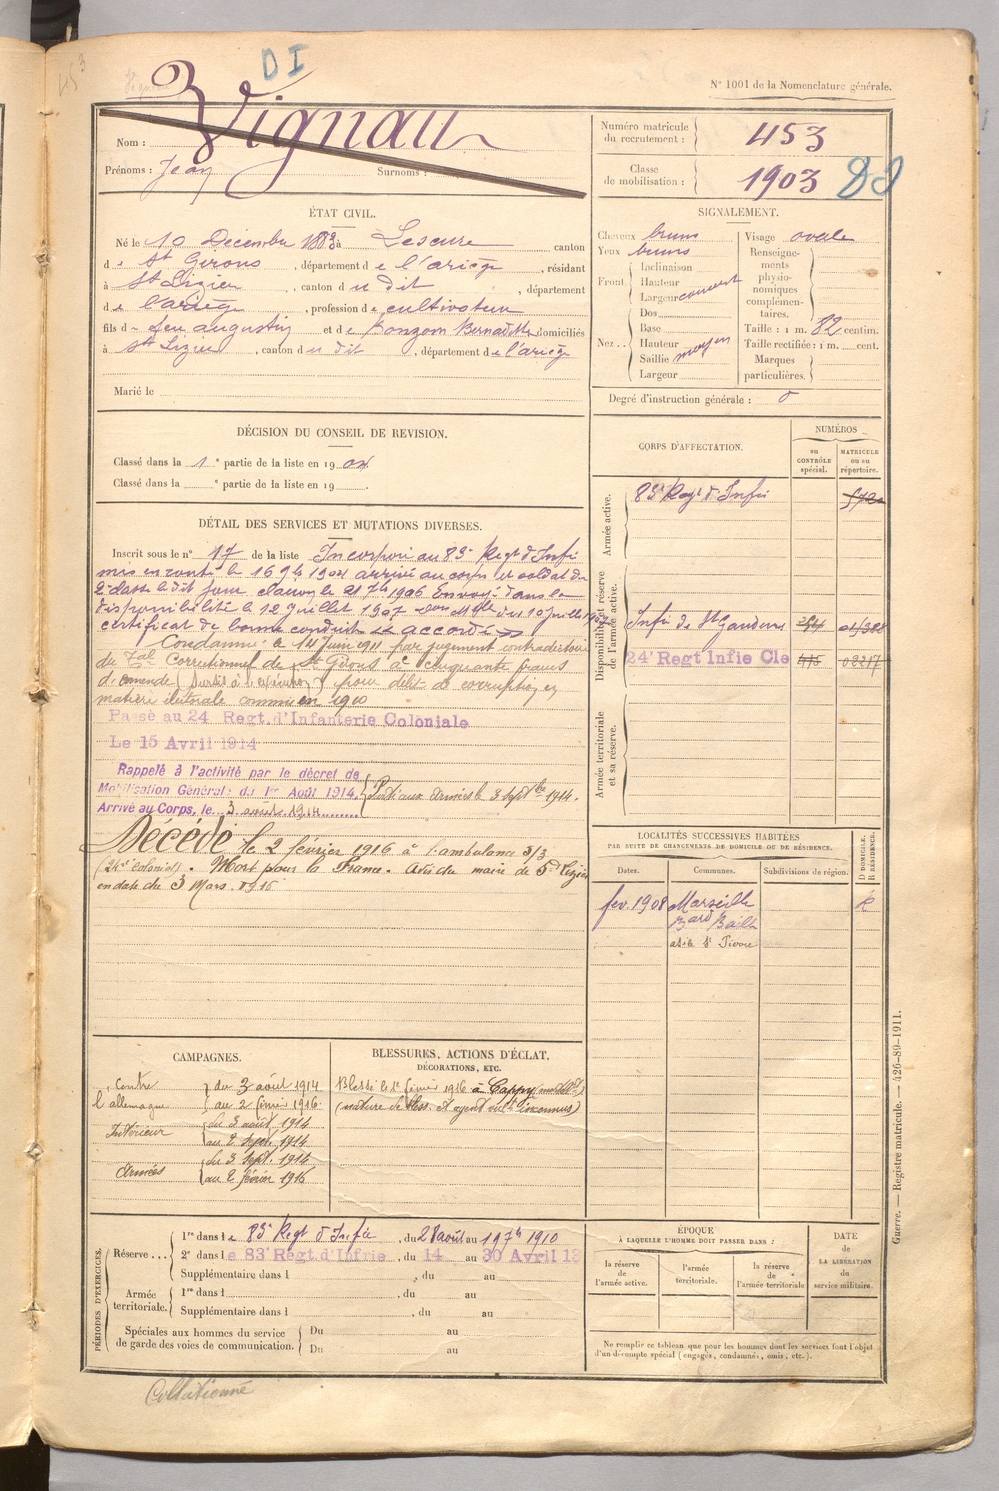 453
DI
N° 1001 de la Nomenclature générale.
Nom : Vignau
Prénoms : Jean Surnoms :
Numéro matricule du recrutement : 453
Classe de mobilisation : 1903
ÉTAT CIVIL.
Né le 10 Décembre 1883 à Lescure canton
de St Girons, département de l'ariège, résidant
à St Lizier, canton du dit, département
de l'ariège, profession de cultivateur
fils de feu augustin et de Ponzom Bernadette domiciliés
à St Lizier, canton du dit, département de l'ariège
Marié le
SIGNALEMENT.
Cheveux bruns
Yeux bruns
Front Inclinaison
Hauteur
Largeur couvert
Nez .. Dos
Base
Hauteur
Saillie moyen
Largeur
Visage ovale
Renseignements physionomiques complémentaires.
Taille : 1 m. 82 centim.
Taille rectifiée : 1 m. cent.
Marques particulières.
Degré d'instruction générale : 0
DÉCISION DU CONSEIL DE REVISION.
Classé dans la 1e partie de la liste en 1904
Classé dans la e partie de la liste en 19 .
CORPS D'AFFECTATION.
NUMÉROS
au CONTRÔLE spécial.
MATRICULE ou au répertoire.
Armée active.
83e Regt d'Infie
Disponibilité et réserve de l'armée active.
Infie de St Gaudens
24e Regt Infie Cle
Armée territoriale et sa réserve.
DÉTAIL DES SERVICES ET MUTATIONS DIVERSES.
Inscrit sous le n° 17 de la liste Incorporé au 83e Regt d'Infie
mis en route le 16 9bre 1904 arrivé au corps et soldat de
2e classe le dit jour clairon le 21 7bre 1906 Envoyé dans la
disponibilité le 12 juillet 1907
certificat de bonne conduite accordé
Condamné le 14 juin 1911 par jugement contradictoire
du Tal Correctionnel de St Girons à cinquante francs
d'amende (Sursis à l'exécution) pour délit de corruption en
matière électorale commis en 1910
Passé au 24 Regt. d'Infanterie Coloniale
Le 15 Avril 1914
Rappelé à l'activité par le décret de
Mobilisation Générale du 1er Août 1914.
Arrivé au Corps, le 3 août 1914
Parti aux armées le 3 Septbre 1914.
Décédé le 2 février 1916 à l'ambulance 3/3
(24e Colonial). Mort pour la France. Avis du maire de St Lizier
en date du 3 Mars 1916
LOCALITÉS SUCCESSIVES HABITÉES
PAR SUITE DE CHANGEMENTS DE DOMICILE OU DE RÉSIDENCE.
Dates. Communes. Subdivisions de région. D DOMICILE. R RÉSIDENCE.
fev. 1908 Marseille R
CAMPAGNES.
Contre l'allemagne du 3 août 1914
au 2 février 1916
Intérieur du 3 août 1914
au 2 Sept. 1914
Armées du 3 Sept. 1914
au 2 février 1916
BLESSURES, ACTIONS D'ÉCLAT.
DÉCORATIONS, ETC.
Blessé le 1er février 1916 à Cappy
(nature de bless. et agent inconnus)
PÉRIODES D'EXERCICES.
Réserve ... 1re dans le 83e Regt d'Infie, du 28 août au 19 7bre 1910
2e dans le 83e Régt. d'Infrie, du 14 au 30 Avril 13
Supplémentaire dans l , du au
Armée territoriale. 1re dans l , du au
Supplémentaire dans l , du au
Spéciales aux hommes du service de garde des voies de communication. Du au
Du au
ÉPOQUE
À LAQUELLE L'HOMME DOIT PASSER DANS :
la réserve de l'armée active.
l'armée territoriale.
la réserve de l'armée territoriale
DATE de LA LIBÉRATION du service militaire.
Ne remplir ce tableau que pour les hommes dont les services font l'objet
d'un décompte spécial (engagés, condamnés, omis, etc.).
Guerre. — Registre matricule. — 426-89-1911.
Collationné